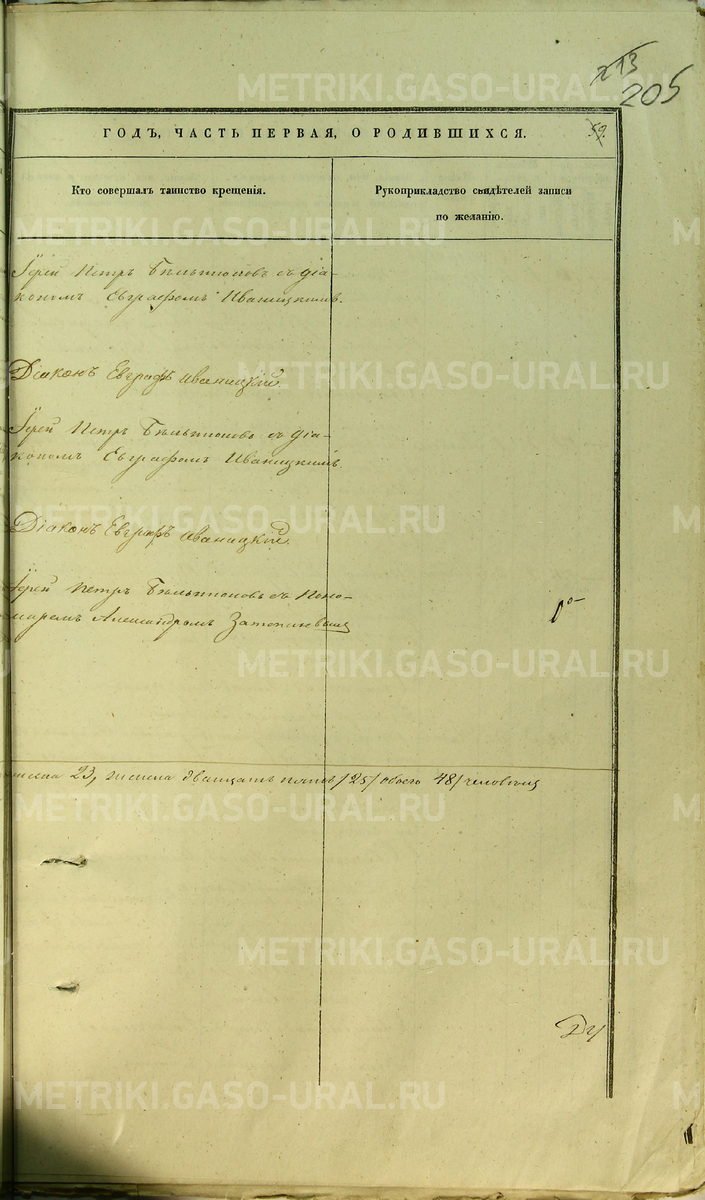 213
205
ГОДЪ, ЧАСТЬ ПЕРВАЯ, О РОДИВШИХСЯ.
59.
Кто совершалъ таинство крещенія.
Рукоприкладство свидѣтелей записи
по желанію.
Іерей Петръ съ діа-
кономъ Евграфомъ Иваницкимъ.
Діаконъ Евграфъ Иваницкій
Іерей Петръ съ діа-
кономъ Евграфомъ Иваницкимъ.
Діаконъ Евграфъ Иваницкій.
Іерей Петръ съ Поно-
маремъ Александромъ
23, женска двадцать пять /25/ обоего 48/ человѣкъ
METRIKI.GASO-URAL.RU